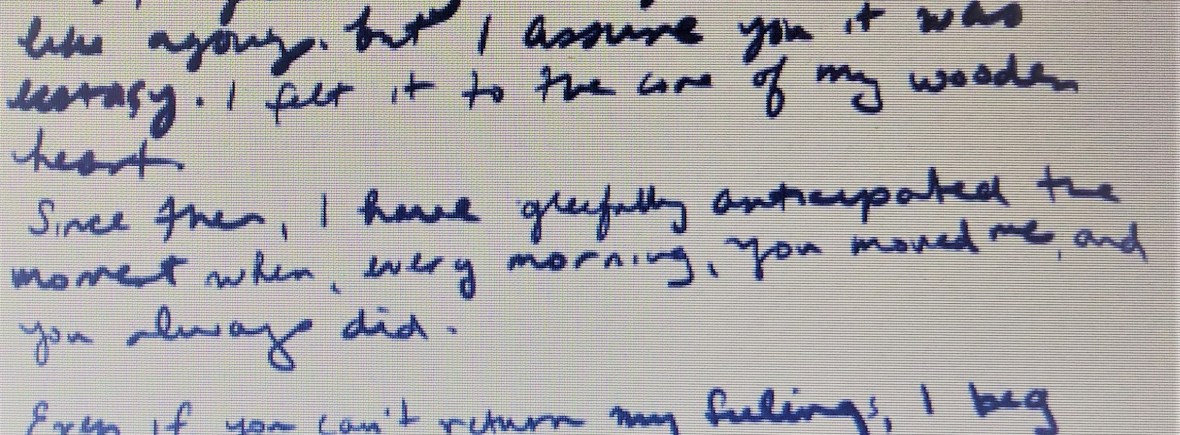 like agony. but I assure you it was
ecstasy. I felt it to the core of my wooden
heart.
Since then, I have gleefully anticipated the
moment when, every morning, you moved me, and
you always did.
Even if you can't return my feelings, I beg